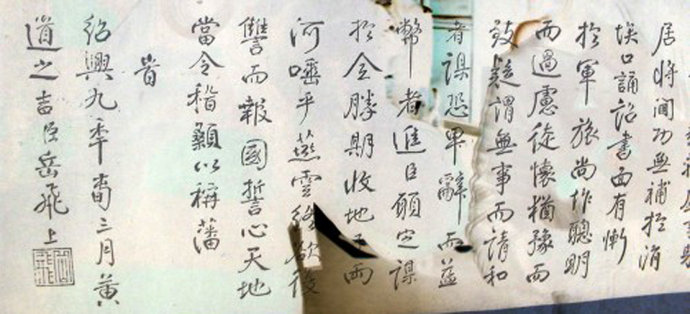 居將閫功無補於涓
埃口誦詔書面有慚
於軍旅尚作聰明
而過慮從懷猶豫而
致疑謂無事而請和
者謀恐卑辭而益
幣者進臣願定謀
於全勝期收地 兩
河唾手燕雲終欲復
讐而報國誓心天地
當令稽顙以稱藩
旹
紹興九年旾三月黃
道之吉臣岳飛上